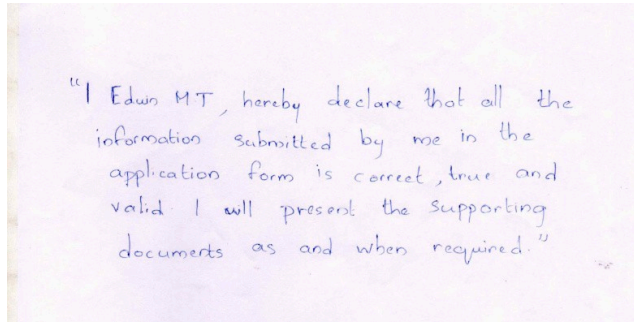 "I Edwin M T, hereby declare that all the
information submitted by me in the
application form is correct, true and
valid. I will present the supporting
documents as and when required."